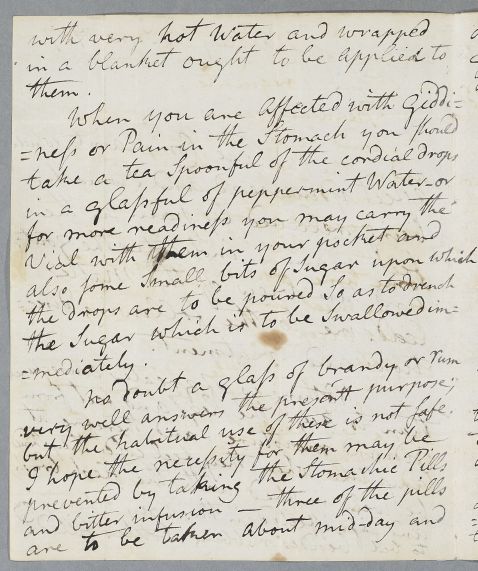 with very hot Water and wrapped
in a blanket ought to be applied to
them.
When you are affected with Giddi=
=neſs or Pain in the Stomach you should
take a tea Spoonful of the cordial drops
in a glaſsful of peppermint Water - or
for more readineſs you may carry the
Vial with them in your pocket and
also some Small bits of Sugar upon which
the drops are to be poured So as to drench
the Sugar which is to be Swallowed im=
=mediately.
No doubt a glaſs of brandy or rum
very well answers the present purpose;
but the habitual use of these is not safe.
I hope the neceſsity for them may be
prevented by taking the Stomachic Pills
and bitter infusion - three of the pills
are to be taken about mid-day and